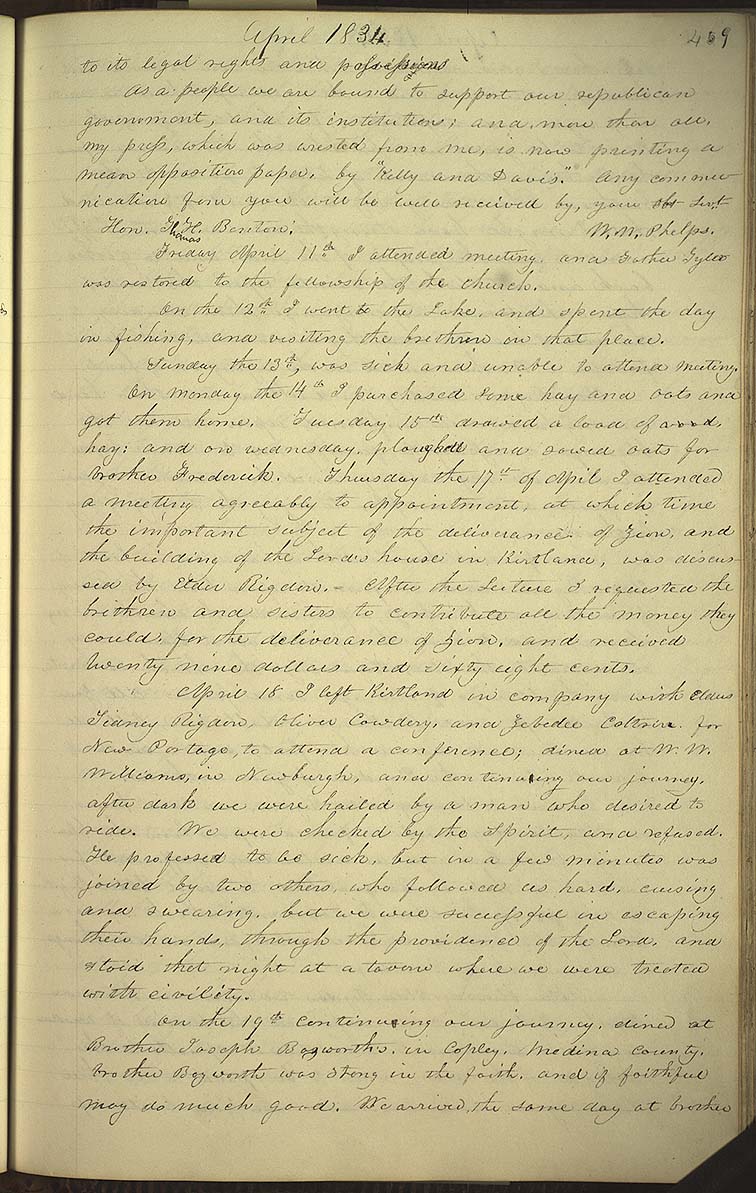 April 1834
409
to its legal rights and possessions
As a people we are bound to support our republican
government, and its institutions; and, more than all,
my press, which was wrested from me, is now printing a
mean opposition paper, by "Kelly and Davis." Any commu-
nication from you will be well received by, your obt Servt
Hon. Thomas H. Benton; W. W. Phelps.
Friday April 11th I attended meeting, and Father Tyler
was restored to the fellowship of the church.
On the 12th I went to the Lake, and spent the day
in fishing, and visiting the brethren in that place.
Sunday the 13th, was sick and unable to attend meeting.
On monday the 14th I purchased some hay and oats and
got them home. Tuesday 15th drawed a load of
hay; and on wednesday, ploughed and sowed oats for
brother Frederick. Thursday the 17th of April I attended
a meeting agreeably to appointment, at which time
the important subject of the deliverance of Zion, and
the building of the Lord's house in Kirtland, was discus-
sed by Elder Rigdon. – After the Lecture I requested the
brethren and sisters to contribute all the money they
could, for the deliverance of Zion, and received
twenty nine dollars and sixty eight cents.
April 18 I left Kirtland in company with Elders
Sidney Rigdon, Oliver Cowdery, and Zebedee Coltrin for
New Portage, to attend a conference; dined at W. W.
Williams, in Newburgh, and continuing our journey,
after dark we were hailed by a man who desired to
ride. We were checked by the Spirit, and refused.
He professed to be sick, but in a few minutes was
joined by two others, who followed us hard, cursing
and swearing, but we were successful in escaping
their hands, through the providence of the Lord, and
staid that night at a tavern where we were treated
with civility.
On the 19th continuing our journey, dined at
Brother Joseph Bozworth's, in Copley, Medina county.
brother Bozworth was strong in the faith, and if faithful
may do much good. We arrived, the same day at brother